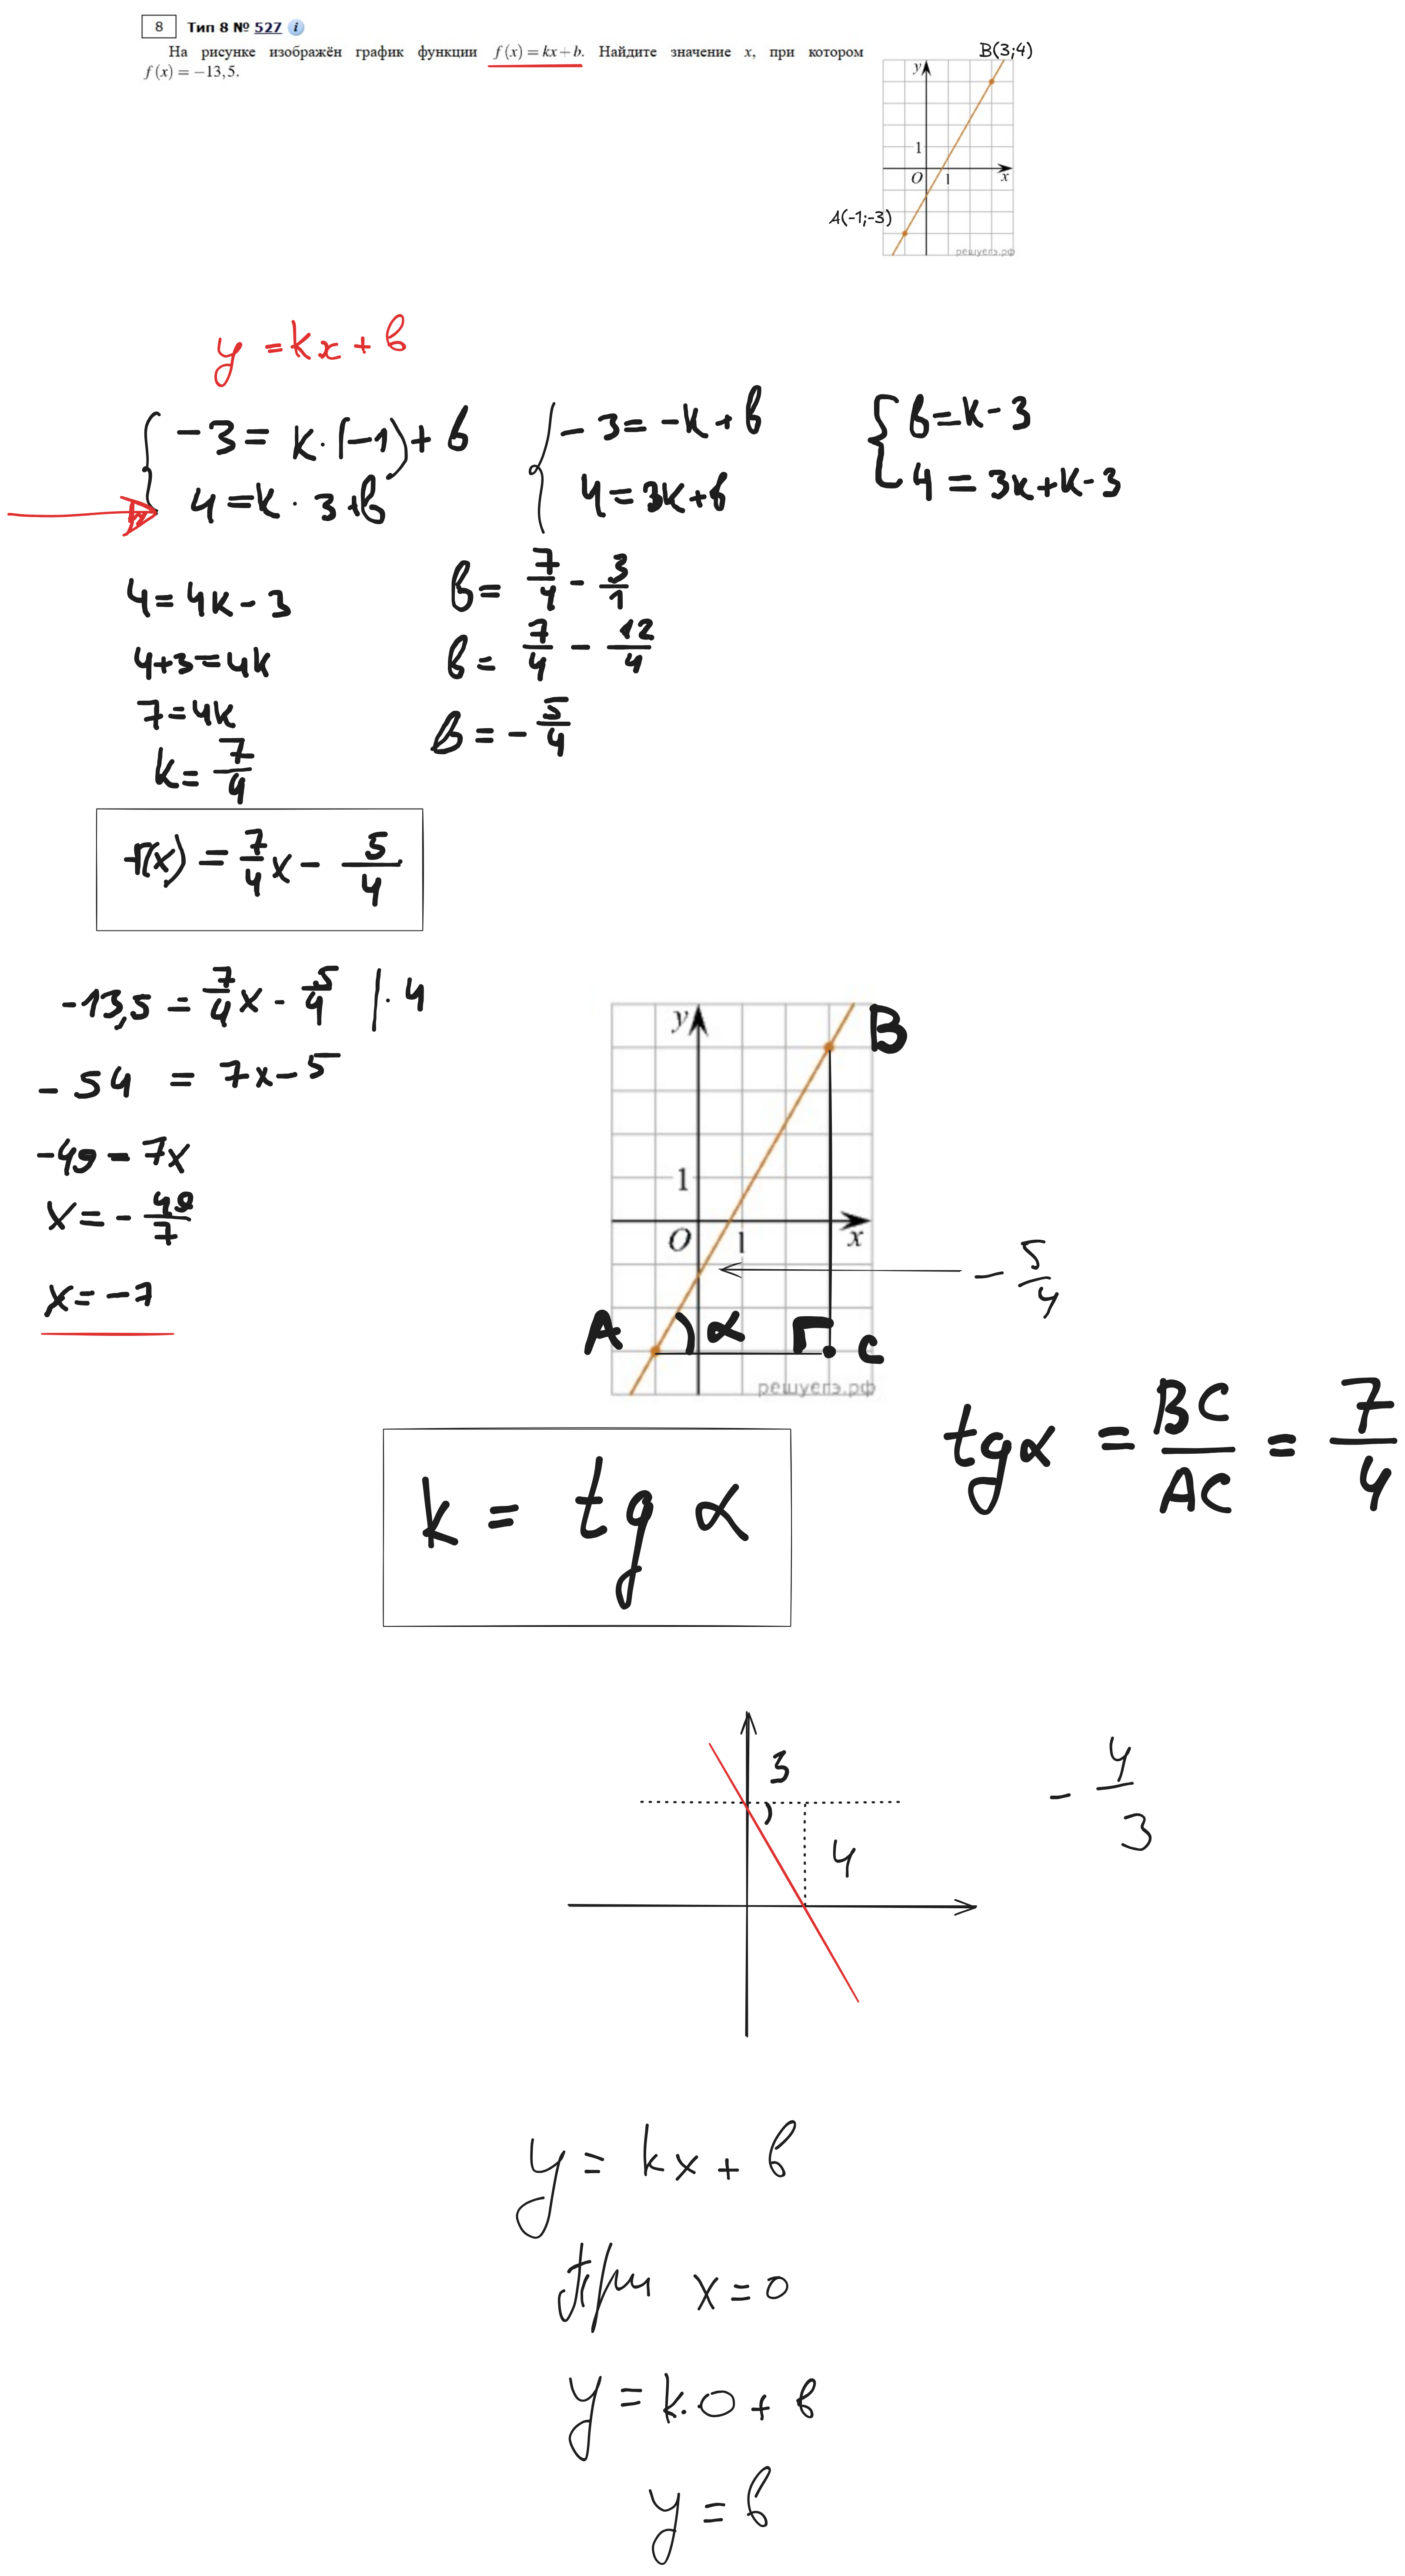 8 Тип 8 № 527 i
На рисунке изображён график функции f(x) = kx + b. Найдите значение x, при котором
f(x) = −13,5.
B(3;4)
y
1
O 1 x
A(-1;-3)
решуегэ.рф
y = kx + b
-3 = k·(-1) + b
4 = k·3 + b
-3 = -k + b
4 = 3k + b
b = k - 3
4 = 3k + k - 3
4 = 4k - 3
4+3 = 4k
7 = 4k
k = 7/4
b = 7/4 - 3/1
b = 7/4 - 12/4
b = - 5/4
f(x) = 7/4 x - 5/4
-13,5 = 7/4 x - 5/4 | · 4
-54 = 7x - 5
-49 = 7x
x = - 49/7
x = -7
y
B
1
O 1 x
- 5/4
A α C
решуегэ.рф
tg α = BC/AC = 7/4
k = tg α
3
4
- 4/3
y = kx + b
При x = 0
y = k·0 + b
y = b